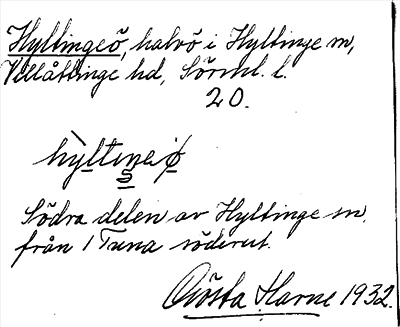 Hyltingeö, halvö i Hyltinge sn,
Villåttinge hd, Sörml. l.
20.
hỳltıŋe ø̀
Södra delen av Hyltinge sn
från 1 Tuna söderut.
Gösta Harne 1932.